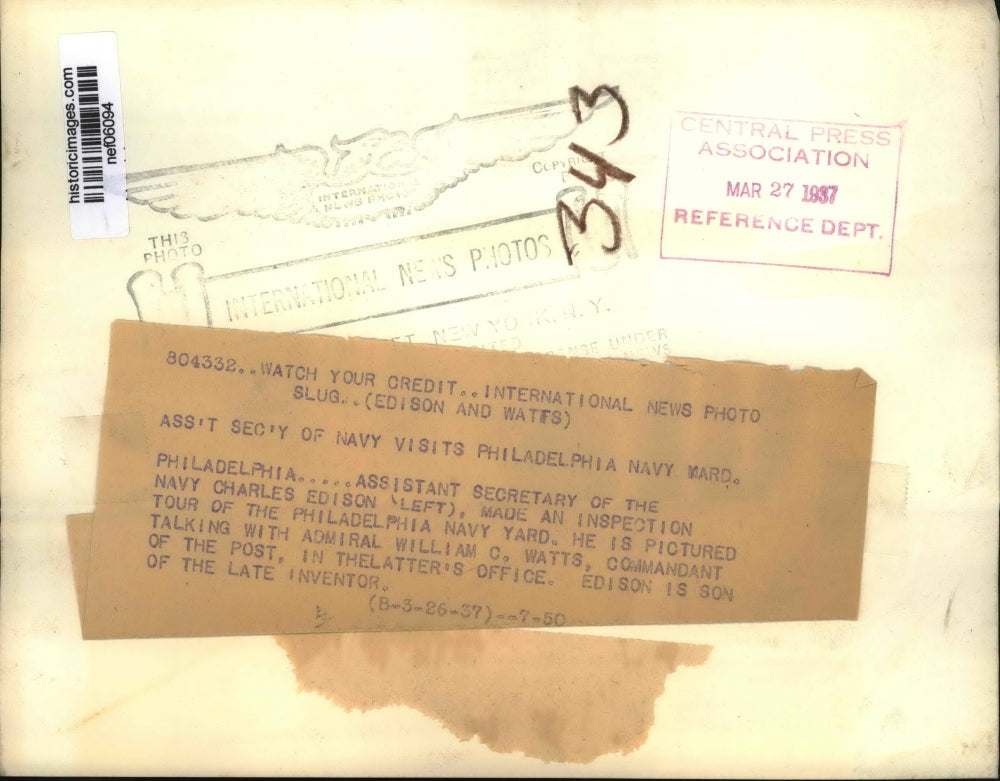 historicimages.com
nef06094
INTERNATIONAL
NEWS PHOTO
COPYRIG
343
CENTRAL PRESS
ASSOCIATION
MAR 27 1937
REFERENCE DEPT.
THIS
PHOTO
INTERNATIONAL NEWS PHOTOS
NEW YORK, N.Y.
UNDER
804332..WATCH YOUR CREDIT..INTERNATIONAL NEWS PHOTO
SLUG..(EDISON AND WATTS)
ASS'T SEC'Y OF NAVY VISITS PHILADELPHIA NAVY WARD.
PHILADELPHIA.....ASSISTANT SECRETARY OF THE
NAVY CHARLES EDISON (LEFT), MADE AN INSPECTION
TOUR OF THE PHILADELPHIA NAVY YARD. HE IS PICTURED
TALKING WITH ADMIRAL WILLIAM C. WATTS, COMMANDANT
OF THE POST, IN THELATTER'S OFFICE. EDISON IS SON
OF THE LATE INVENTOR.
(B-3-26-37)--7-50